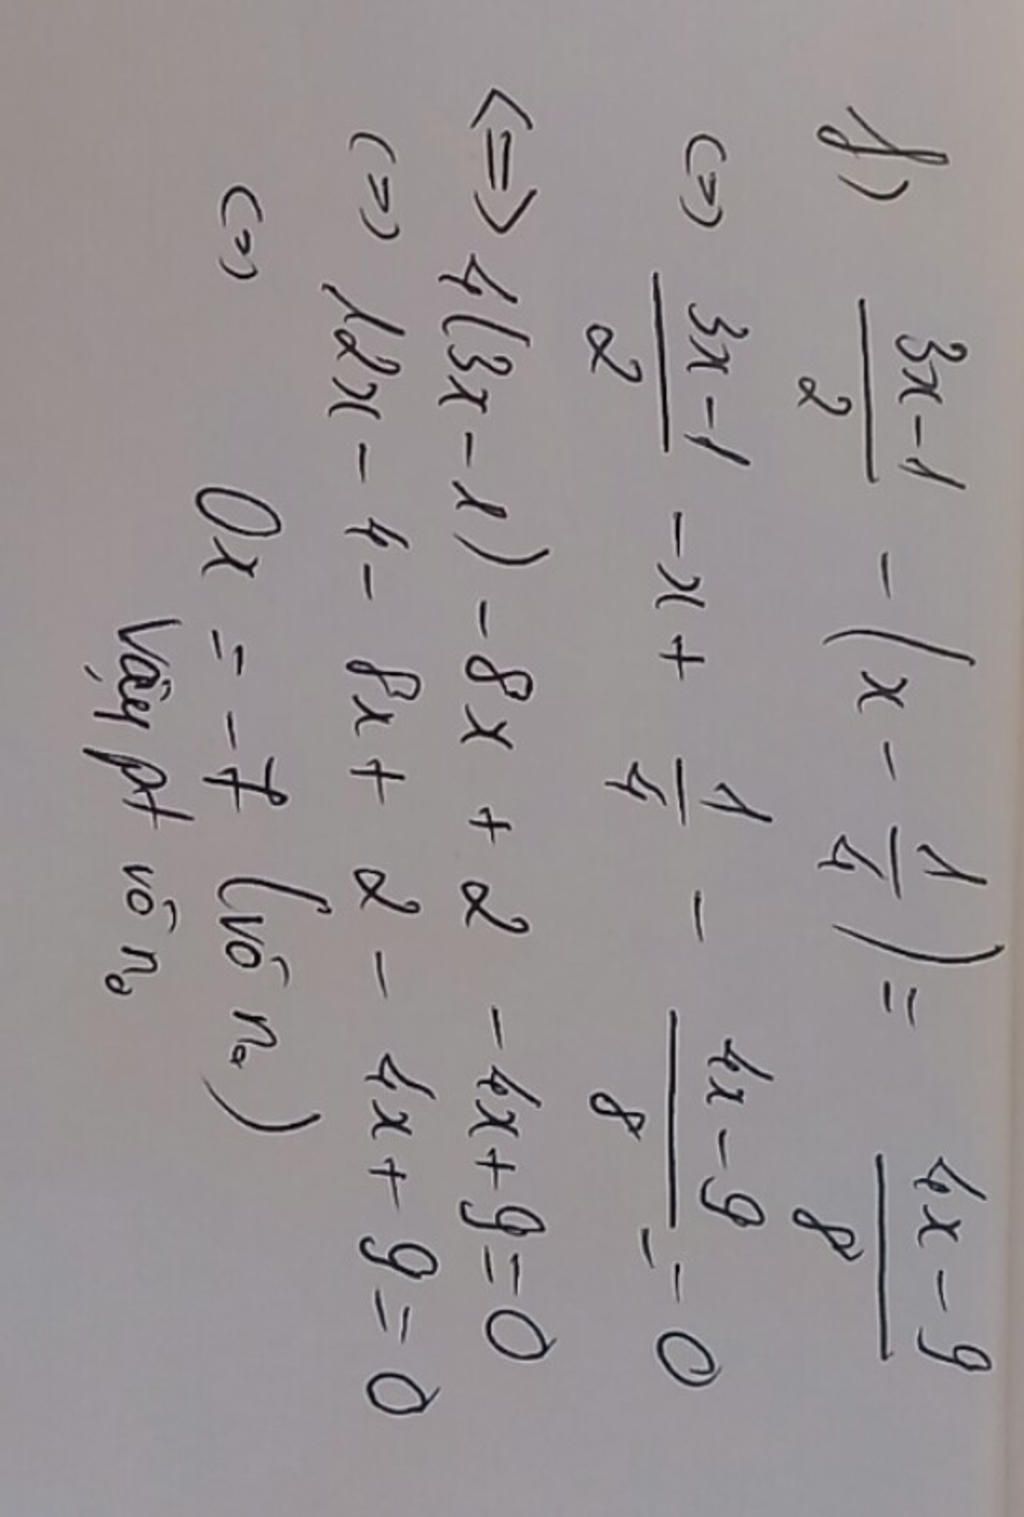 f) \frac{3x-1}{2} - (x - \frac{1}{4}) = \frac{4x-9}{8}
<=> \frac{3x-1}{2} - x + \frac{1}{4} - \frac{4x-9}{8} = 0
<=> 4(3x-1) - 8x + 2 - 4x + 9 = 0
<=> 12x - 4 - 8x + 2 - 4x + 9 = 0
<=> 0x = -7 (vô no)
Vậy pt vô no